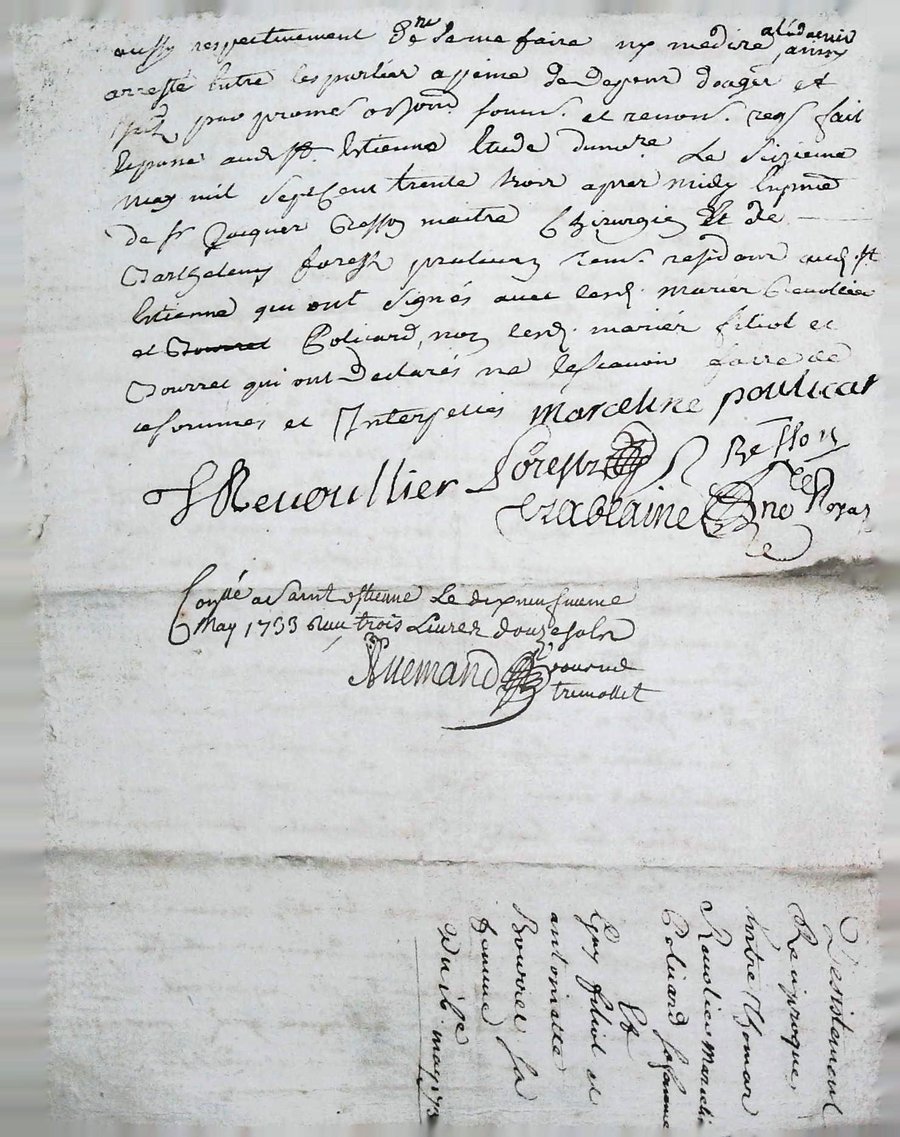 aussy respectivement de ne se mefaire ny medire a l'advenir ainsy
arresté entre les parties a peine de depens domages et
par promes obson. soum. et renon. req. fait
et passé aud. St. Estienne etude du nore. Le sizieme
may mil sept cent trente trois apres midy en pnce
de sr Jacques Besson maitre Chirurgien Et de
Barthelemy forest praticien tems. residant aud. st.
Estienne qui ont signés avec lesd. mariés Revollier
et Bourret Policard, non lesd. mariés filiol et
Bourret qui ont declarés ne le scavoir faire de
ce sommes et Interpellés marceline poulicar
Revoullier forest Besson
Chablaine ne Royal
Con.lé a Saint estienne Le dix neufvieme
May 1733 Reçu trois Livres douze sols
Allemand pour mr
tremollet
Desistement
Reciproque
entre Thomas
Revolier Marcelin
Policard sa femme
Et
Guy filiol et
antoinette
Bourret sa
femme
Du 6e may 173